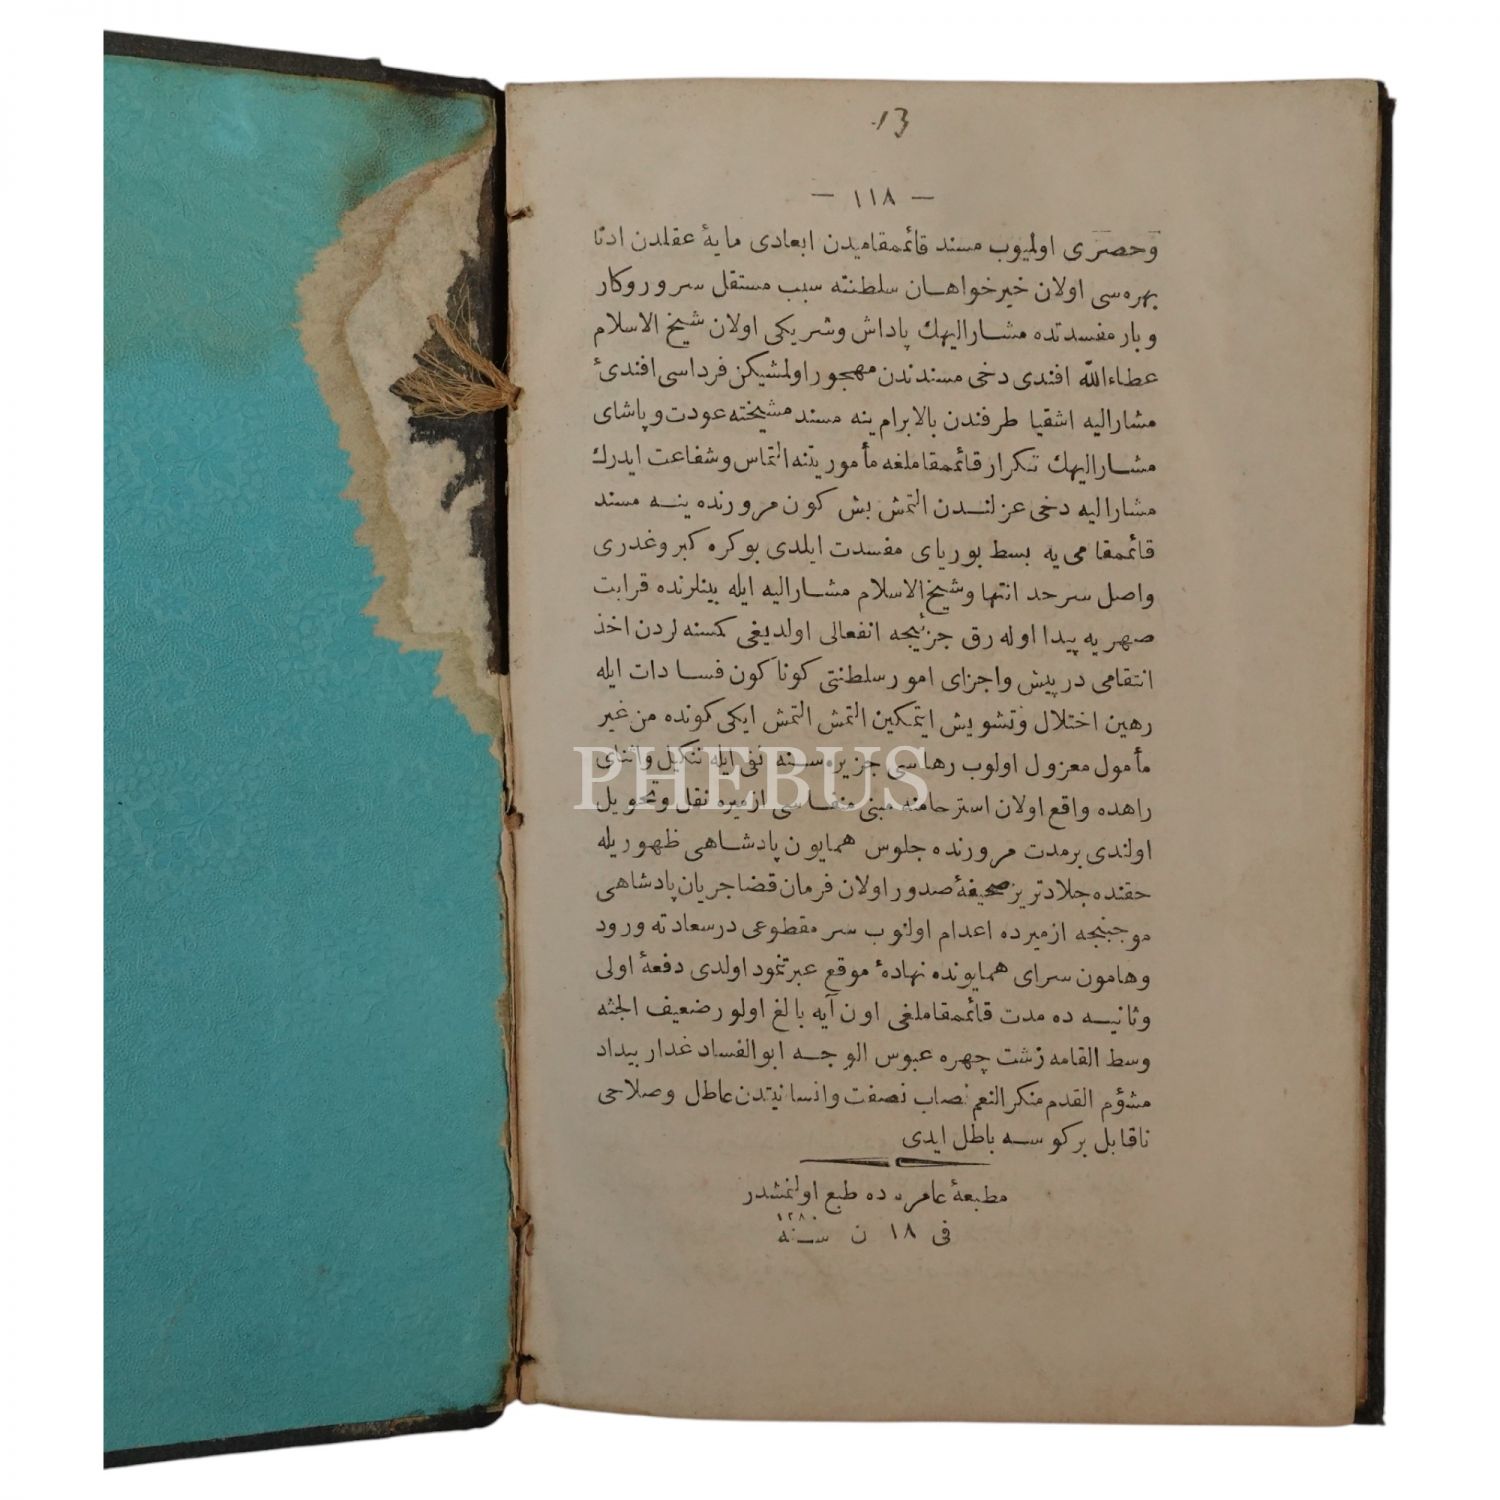 13
— ١١٨ —
وحصری اولمیوب مسند قائممقامیدن ابعادی مایهٔ عقلدن ادنا
بهره‌سی اولان خیرخواهان سلطنته سبب مستقل سرور وکار
وبار مفسدتده مشارالیهك پاداش وشریکی اولان شیخ الاسلام
عطاءالله افندی دخی مسندندن مهجور اولمشیکن فرداسی افندیٔ
مشارالیه اشقیا طرفندن بالابرام ینه مسند مشیخته عودت وپاشای
مشارالیهك تکرار قائممقاملغه مأموریتنه التماس وشفاعت ایدرك
مشارالیه دخی عزلندن التمش بش کون مرورنده ینه مسند
قائممقامی‌یه بسط بوریای مفسدت ایلدی بوکره کبر وغدری
واصل سرحد انتها وشیخ الاسلام مشارالیه ایله بینلرنده قرابت
صهریه پیدا اوله‌رق جزئیجه انفعالی اولدیغی کمسنه‌لردن اخذ
انتقامی درپیش واجزای امور سلطنتی کوناکون فسادات ایله
رهین اختلال وتشویش ایتمکین التمش التمش ایکی کونده من غیر
مأمول معزول اولوب رهاسی جزیره‌سنه نفی ایله تنکیل واثنای
راهده واقع اولان استرحامنه مبنی منفاسی ازمیره نقل وتحویل
اولندی برمدت مرورنده جلوس همایون پادشاهی ظهوریله
حقنده جلادتریز صحیفهٔ صدور اولان فرمان قضاجریان پادشاهی
موجبنجه ازمیرده اعدام اولنوب سر مقطوعی درسعادته ورود
وهامون سرای همایونده نهادهٔ موقع عبرتنمود اولدی دفعهٔ اولی
وثانیه‌ده مدت قائممقاملغی اون آیه بالغ اولور ضعیف الجثه
وسط القامه زشت چهره عبوس الوجه ابوالفساد غدار بیداد
مشؤم القدم منکر النعم نصاب نصفت وانسانیتدن عاطل وصلاحی
ناقابل برکوسه باطل ایدی
مطبعهٔ عامره‌ده طبع اولنمشدر
فی ١٨ ن سنه ١٢٨٠
PHEBUS